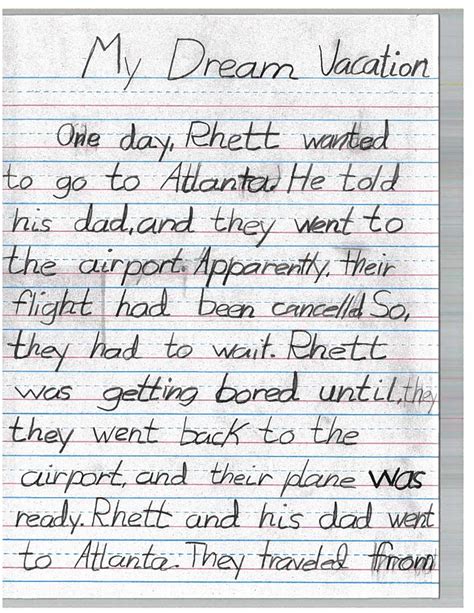 My Dream Vacation
One day, Rhett wanted
to go to Atlanta. He told
his dad, and they went to
the airport. Apparently, their
flight had been cancelld So,
they had to wait. Rhett
was getting bored until, they
they went back to the
airport, and their plane was
ready. Rhett and his dad went
to Atlanta. They traveled from